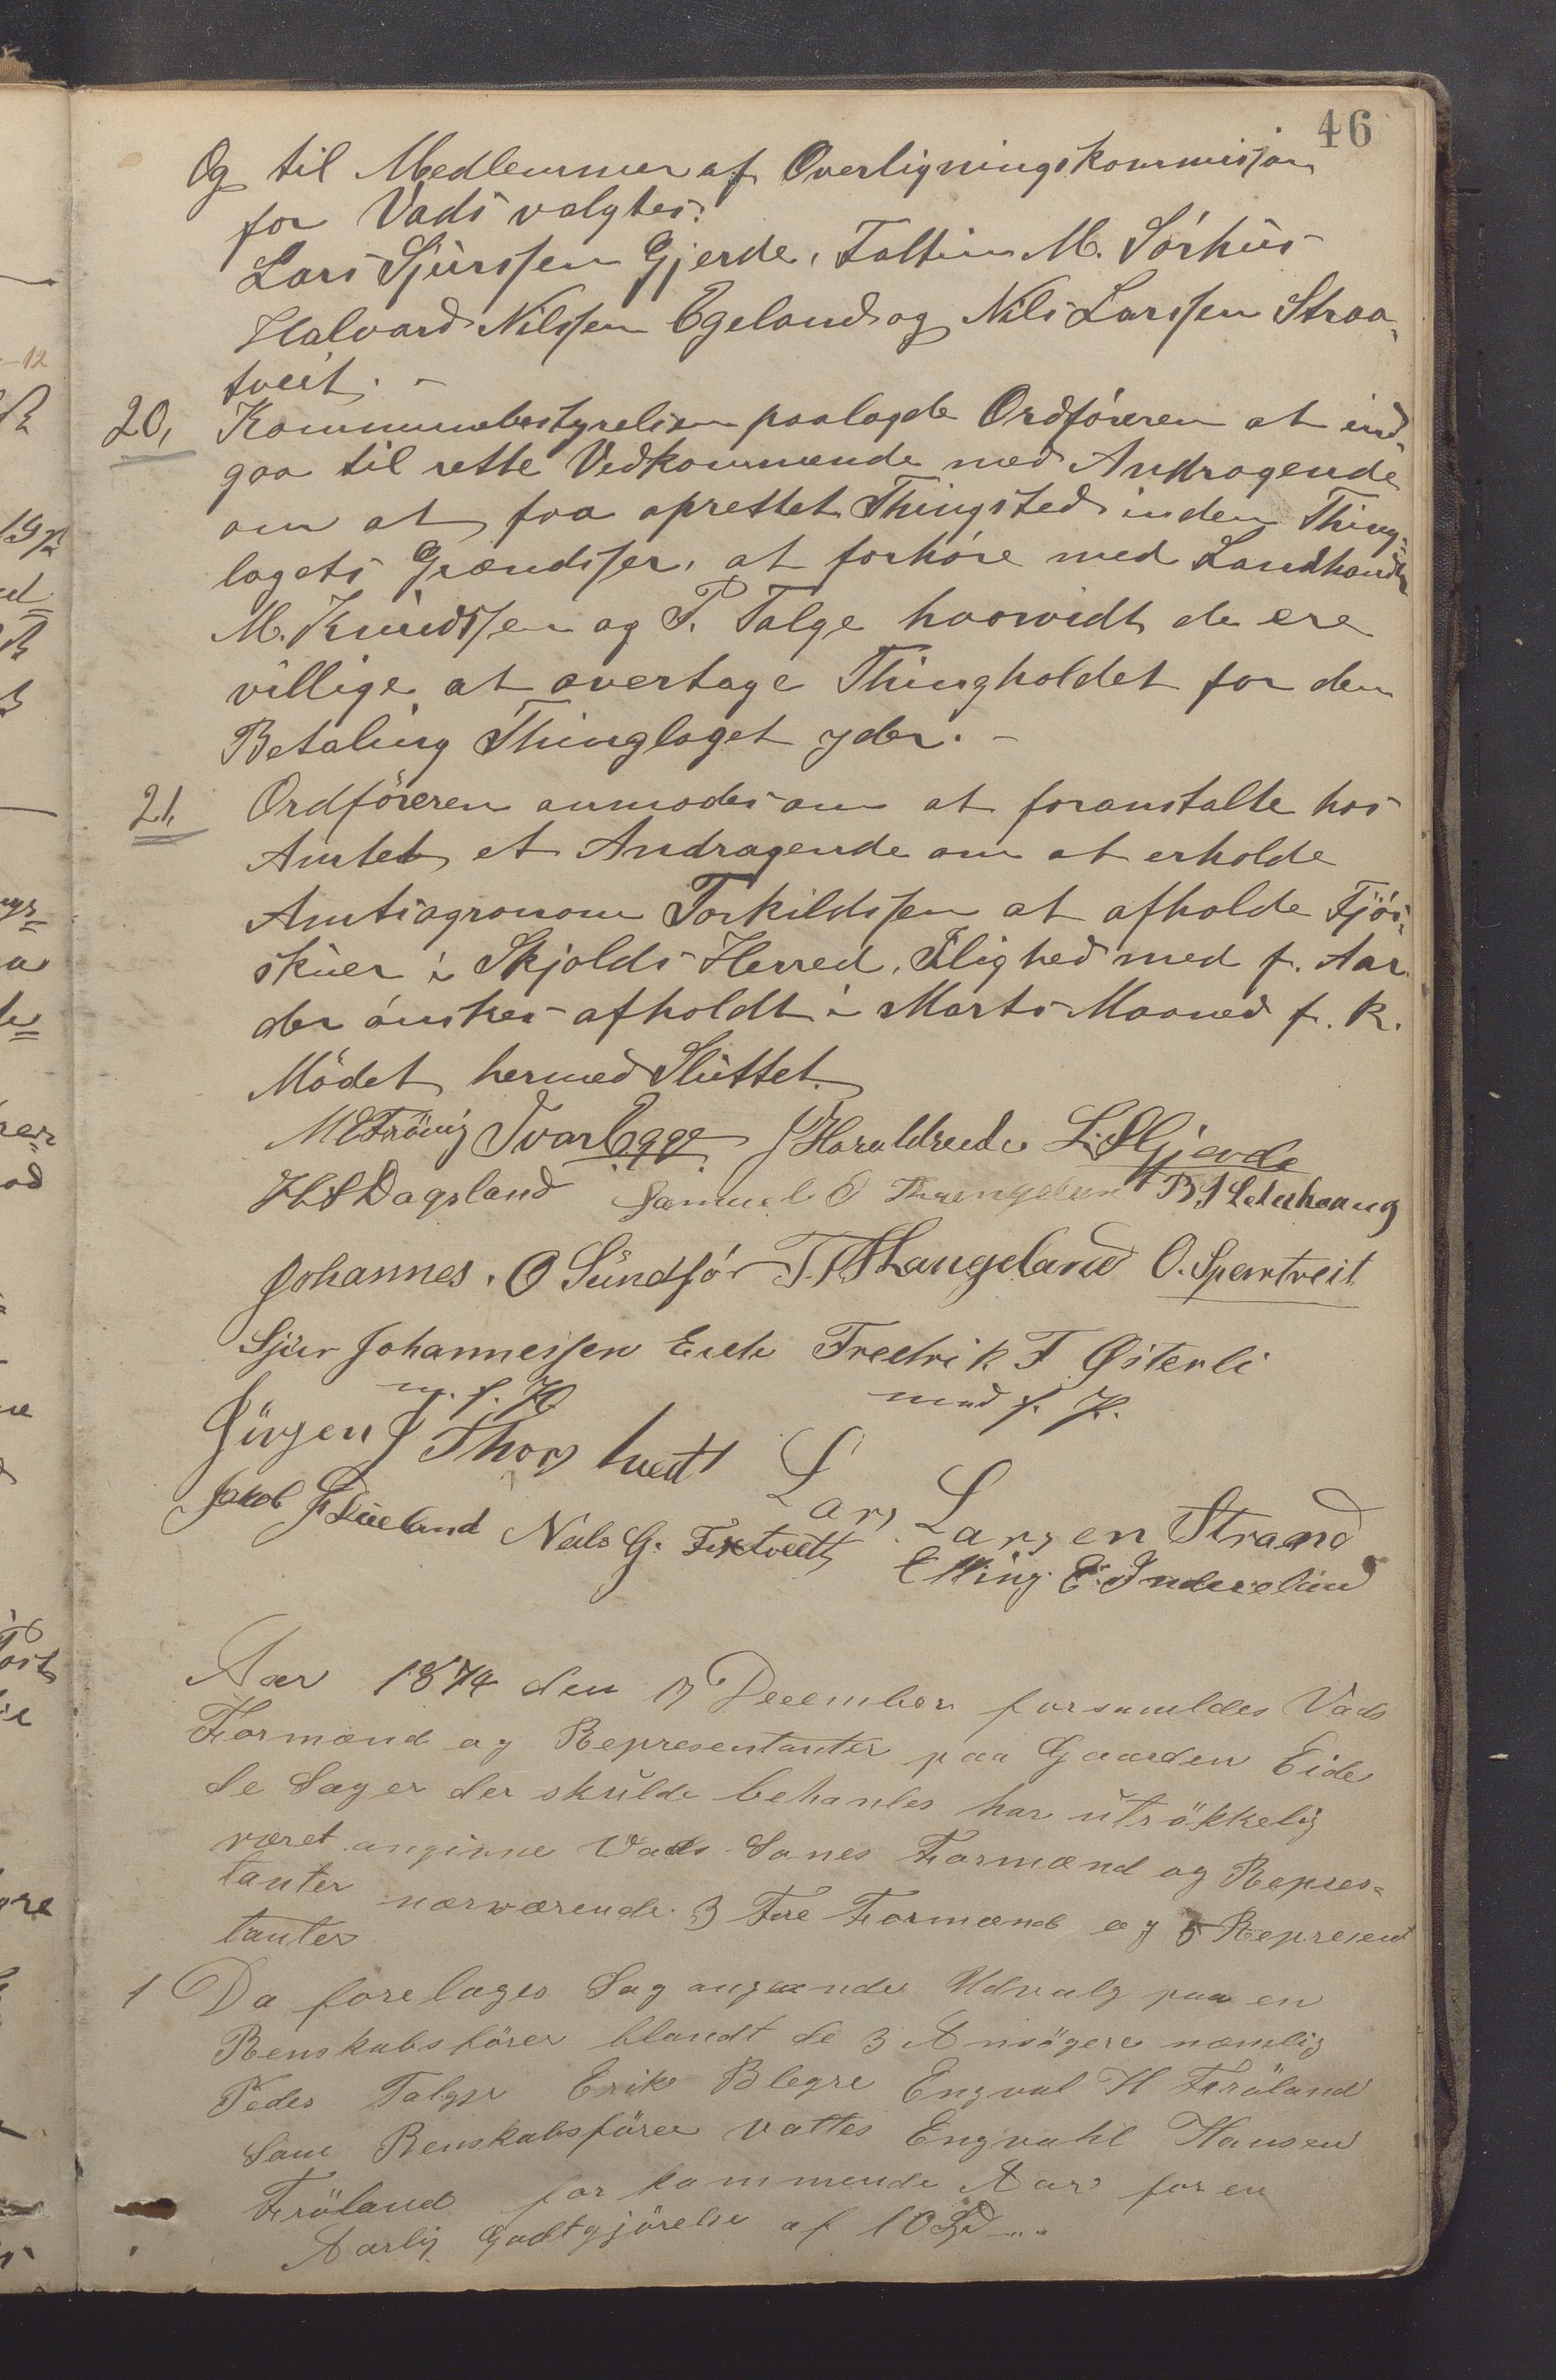 46
Og til Medlemmer af Overligningskommisjon
for Vads valgtes:
Lars Sjurssen Gjerde, Faltin M. Sørhus
Halvard Nilssen Egeland og Nils Larssen Straa-
tveit. -
20, Kommunebestyrelsen paalagde Ordføreren at ind-
gaa til rette Vedkommende med Andragende
om at faa oprettet Thingsted inden Thing-
lagets Grændsser, at forhøre med Landhandler
M. Knudssen og P. Talge hvorvidt de ere
villige at overtage Thingholdet for den
Betaling Thinglaget yder. -
21, Ordføreren anmodes om at foranstalte hos
Amtet et Andragende om at erholde
Amtsagronom Torkildssen at afholde Fjøs-
skuer i Skjolds Herred, Iflighed med f. Aar
der ønskes afholdt i Marts Maaned f. k.
Mødet hermed Sluttet.
Ivar Egge J Haraldseide L. S Gjerde
H S Dagsland Samuel O
Johannes. O Sundfør T. T Langeland O. Spærtveit
Sjur Johannessen Eide Fredrik T Østerli
m. f. P. med f. P.
Jürgen J Thorstvedt Lars Larsen Strand
Jakob J Lueland Nels G. Fixtvedt Elling E. Indreeland
Aar 1874 den 17 December forsamldes Vads
Formænd og Representanter paa Gaarden Eide
de Sager der skulde behanles har utrøkkelig
været anginne Vads Sones Formænd og Repres-
tanter nærværende 3 Tre Formænd og 5 Represent
tanter
1 Da forelages Sag angaande Udvalg paa en
Renskabsfører blandt de 3 Ansøgere nemlig
Peder Talge Erik Blegre Engval H Frøland
Som Renskabsfører vattes Engvahl Hansen
Frøland for kommende Aar for en
Aarlig Godtgjørelse af 10 Spd